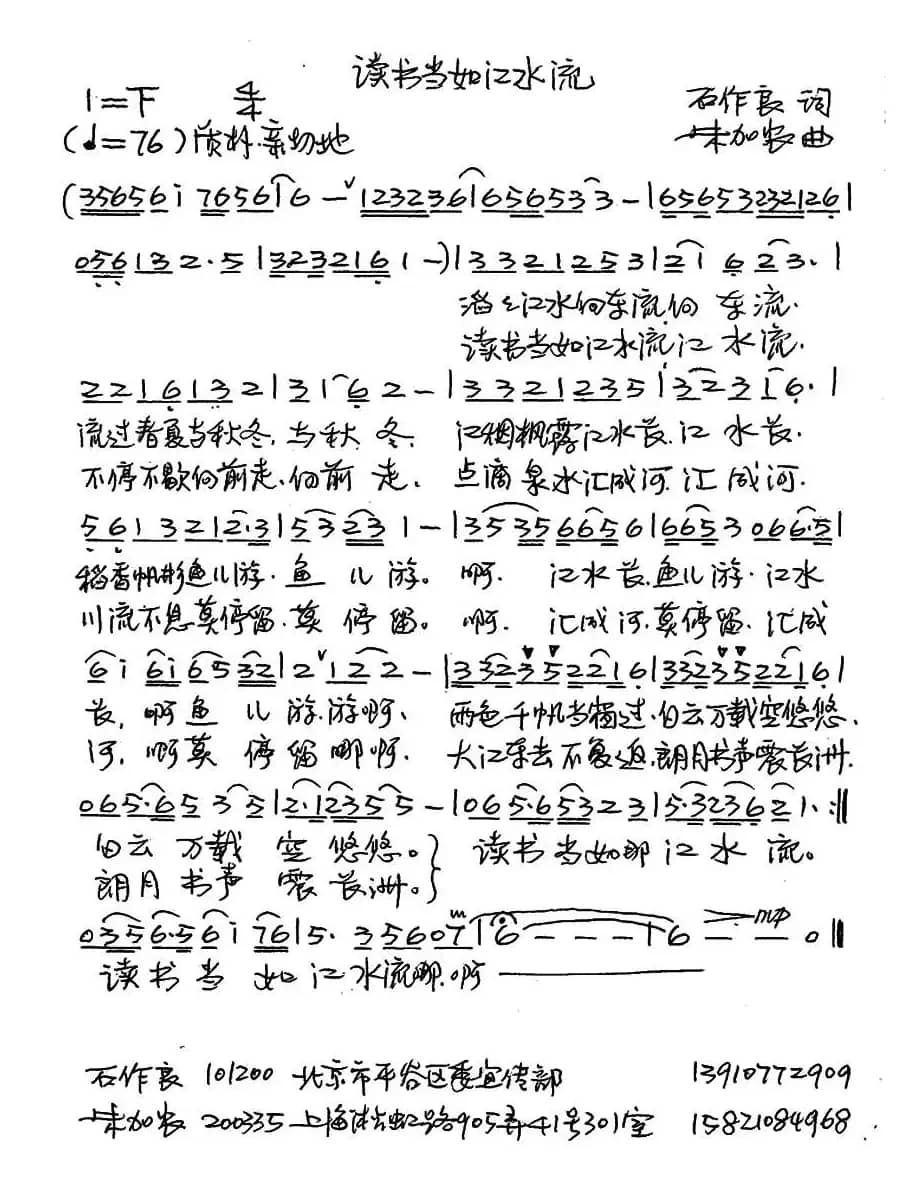 读书当如江水流
1=F 4/4 石作良 词
(♩=76) 质朴.亲切地 朱加农曲
(35656i 76561̇6 - ˅ 1232361656533 - |65653232126|
056132·5|3232161 -)|3321253|21 623·|
滔〻江水向东流,向 东 流·
读书当如江水流,江 水 流·
22161321|3162 - |33212351|3231 6·|
流过春夏与秋冬, 与 秋 冬, 江 水长,江 水长·
不停不歇向前走,向前 走, 点滴泉水汇成河,汇 成河·
561 3212·3|53231 - |353566561|6653 066·5|
稻香帆影鱼儿游·鱼 儿 游。 啊· 江水长,鱼儿游·江水
川流不息莫停留·莫 停 留。 啊· 汇成河,莫停留·汇成
6i 6i6532|2˅122 - |332352216|332352216|
长, 啊鱼 儿 游,游啊、 千帆 过·白云万载空悠悠,
河, 啊莫 停 留哪啊· 大江东去不复返,朗月书声震长洲·
065·6535|2·12355 - |065·653231|5·323621·:‖
白云 万载 空 悠悠。} 读书 当如那 江 水 流。
朗月 书声 震 长洲。}
0356·56i 76|5· 35607|6 - - - |6 - - 0‖ mp
读书 当 如江水流哪·啊
石作良 101200 北京市平谷区委宣传部 13910772909
朱加农 200335 上海 虹路905弄41号301室 15821084968